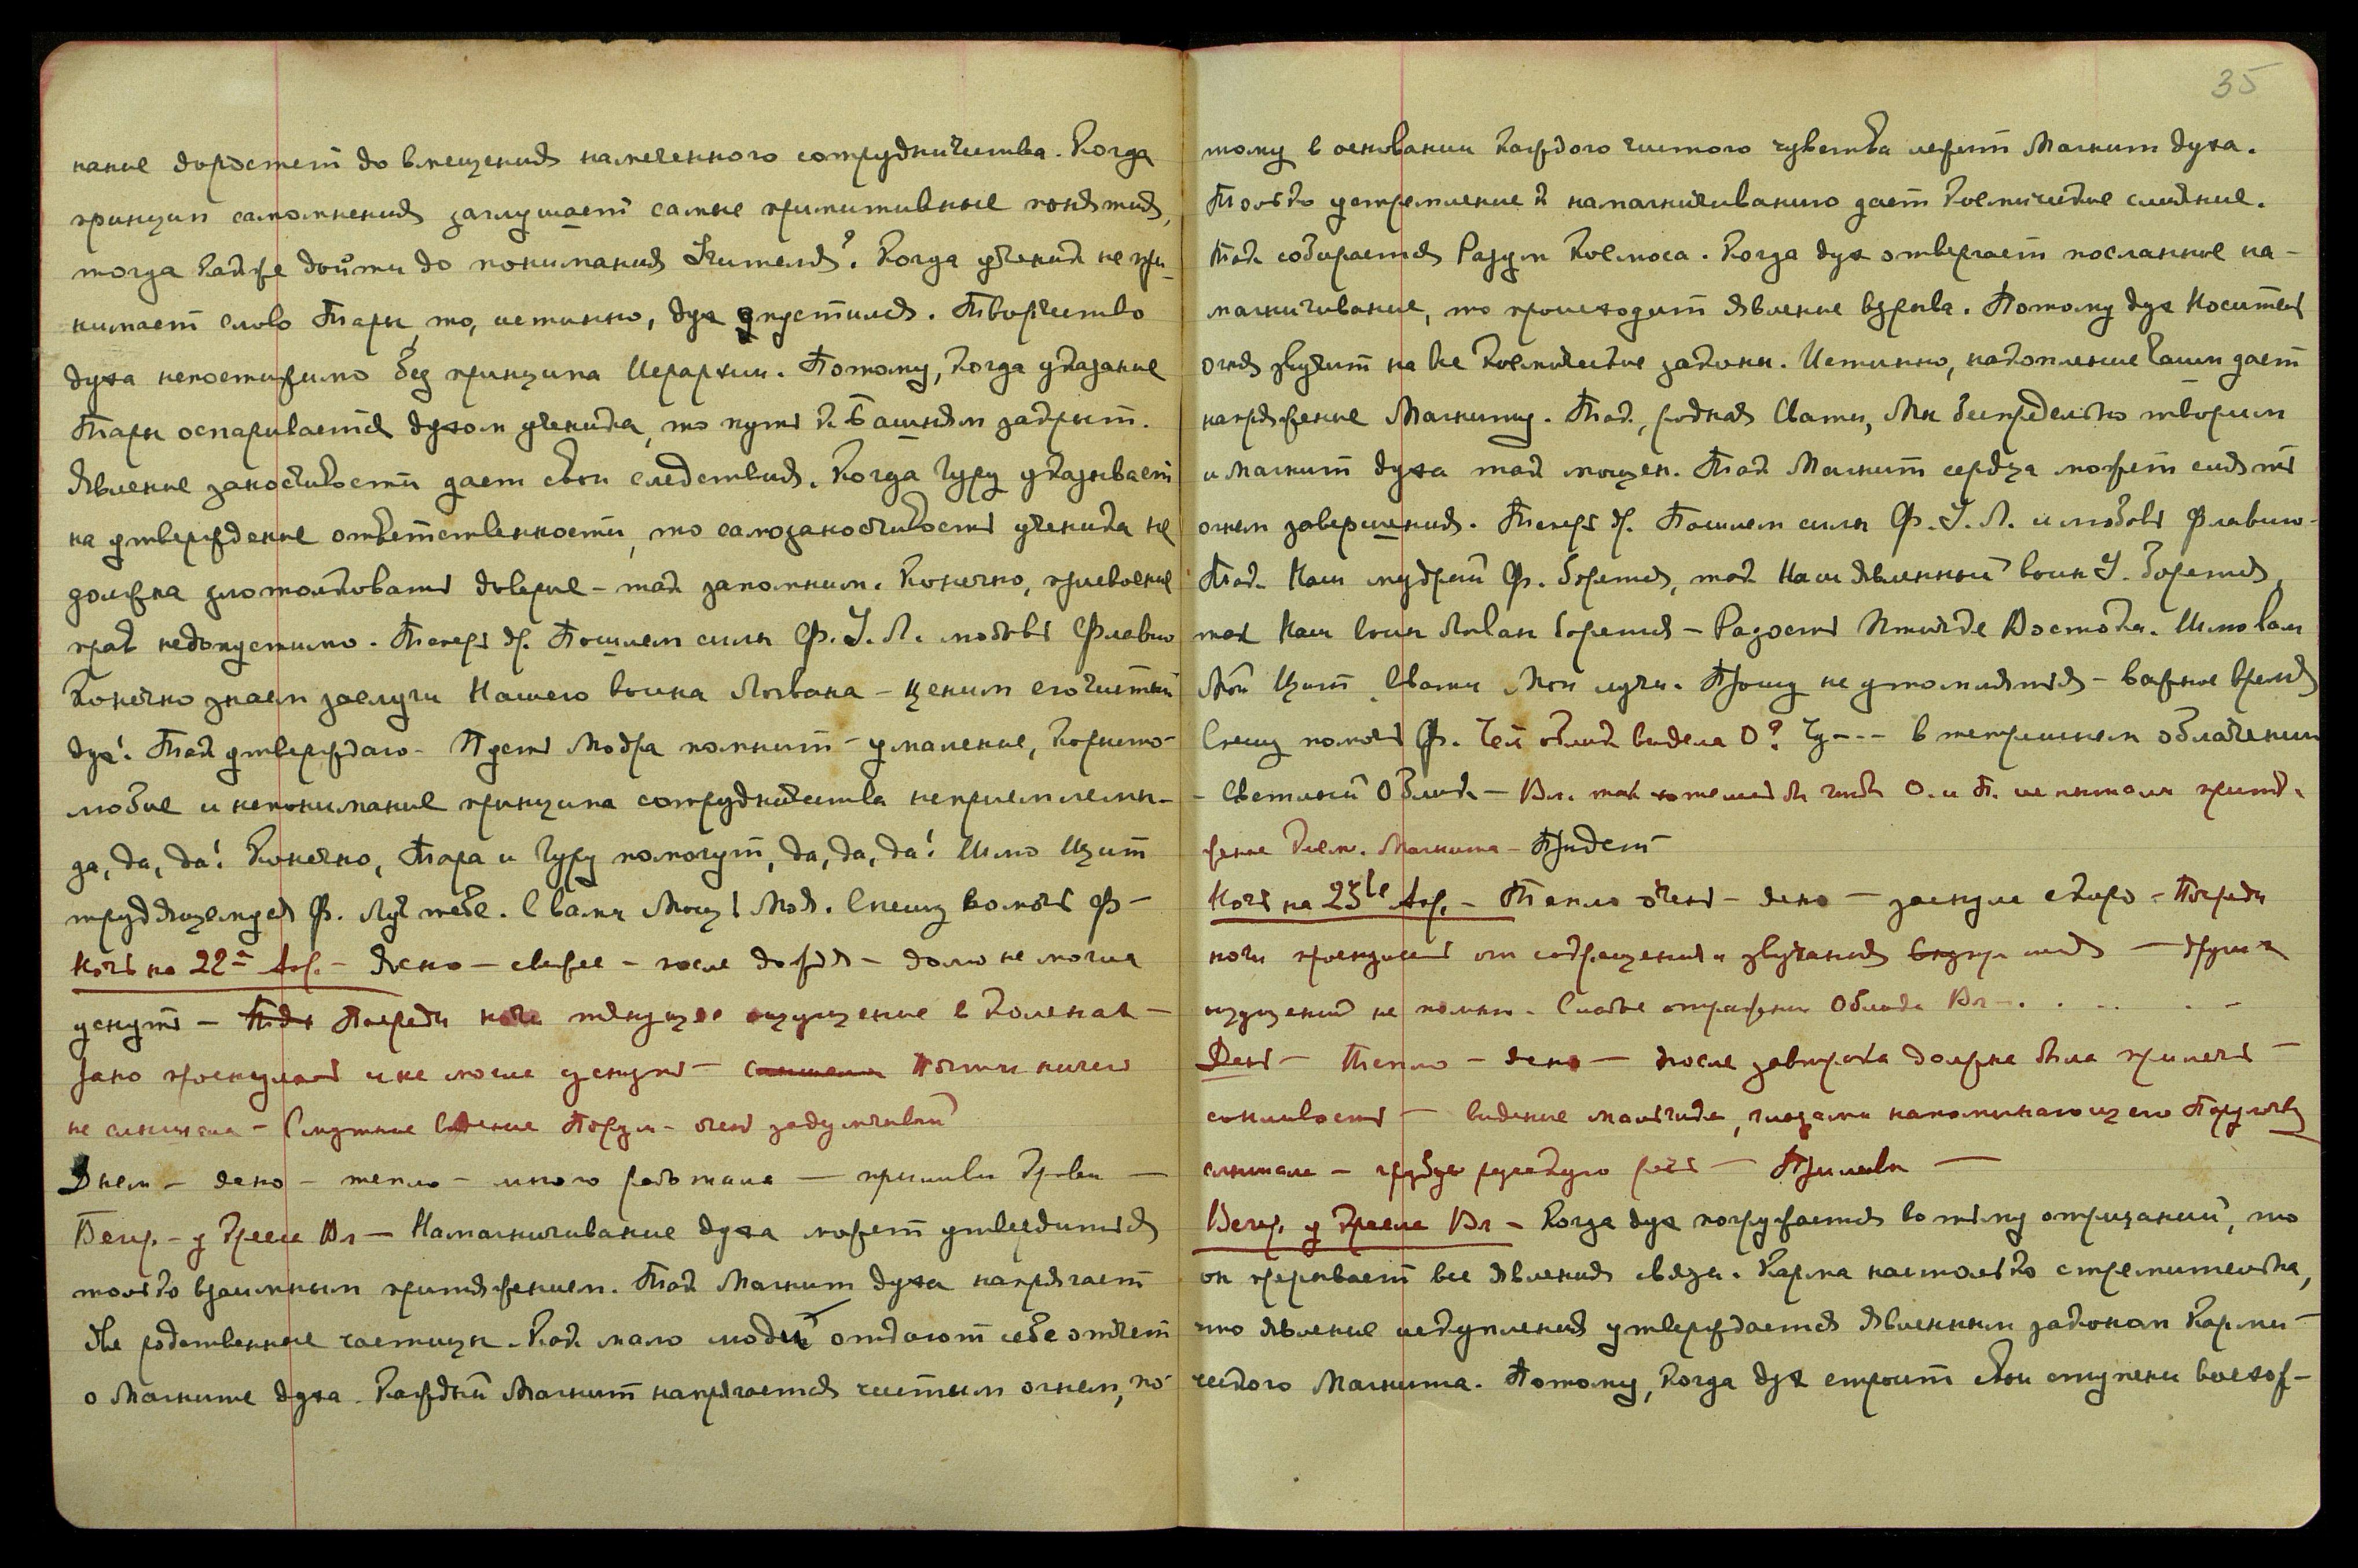 нание дорастет до вмещения намеченного сотрудничества. Когда
принцип самомнения заглушает самые примитивные понятия,
тогда как же дойти до понимания Учителя? Когда ученик не при-
нимает слово Тары, то, истинно, дух опустился. Творчество
духа непостижимо без принципа Иерархии. Потому, когда указание
Тары оспаривается духом ученика, то путь к Башням закрыт.
Явление заносчивости дает свои следствия. Когда Гуру указывает
на утверждение ответственности, то самозаносчивость ученика не
должна злотолковать доверие – так запомним. Конечно, присвоение
прав недопустимо. Теперь др. Пошлем силы Ф. У. Л. любовь Флавию
Конечно знаем заслуги Нашего воина Логвана – ценим его чистый
дух! Так утверждаю – Пусть Модра помнит – умаление, корысто-
любие и непонимание принципа сотрудничества неприемлемы –
да, да, да! Конечно, Тара и Гуру помогут, да, да, да! Шлю Щит
трудящемуся Ф. Луч тебе. С вами Мощь Моя. Спешу помочь Ф –
Ночь на 22ое Апр. – Ясно – свежее – после дождя – долго не могла
уснуть – Посреди ночи тянущее ощущение в коленах –
рано проснулась и не могла уснуть – Почти ничего
не слышала – Смутные видение Порум – очень задумчивый
Днем – ясно – тепло – много работала – приливы крови –
Вечер – у кресла Вл – Намагничивание духа может утвердиться
только взаимным притяжением. Так Магнит духа напрягает
все родственные частицы. Как мало людей отдают себе отчет
о Магните духа. Каждый Магнит напрягается чистым огнем, по-
35
тому в основании каждого чистого чувства лежит Магнит духа.
Только устремление к намагничиванию дает космическое слияние.
Так собирается Разум Космоса. Когда дух отвергает посланное на-
магничивание, то происходит явление взрыва. Потому дух Носитель
огня звучит на все космические законы. Истинно, накопление Чаши дает
напряжение Магниту. Так, родная Свати, Мы беспредельно творим
и магнит духа так мощен. Так Магнит сердца может сиять
огнем завершения. Теперь др. Пошлем силы Ф. У. Л. и любовь Флавию –
Так Наш мудрый Ф. борется, так Наш явленный воин У. борется,
так Наш воин Логван борется – Радость Птичке Востока. Шлю вам
Мой Щит, Свати Мои лучи. Прошу не утомляться – важное время
Спешу помочь Ф. Чей облик видела О? Чу--- в облачении
– Светлый Облик – Вл. так хотелось бы чтобы О. и П. испытали притя-
жение Косм. Магнита – Придет
Ночь на 23ье Апр. – Тепло очень – ясно – заснула скоро – Посреди
ночи проснулась от сокращения и звучания – других
ощущений не помню. Слабые отражения Облика Вл – . . . . . –
День – Тепло – ясно – после завтрака должна была прилечь –
сонливость – видение мальчика, глазами напоминающего Порумочку
слышала – грубую русскую речь – Приливы –
Вечер, у кресла Вл – Когда дух погружается во тьму отрицаний, то
он прерывает все явления связи. Карма настолько стремительна,
что явление искупления утверждается явленным законом Карми-
ческого Магнита. Потому, когда дух строит свои ступени восхож-